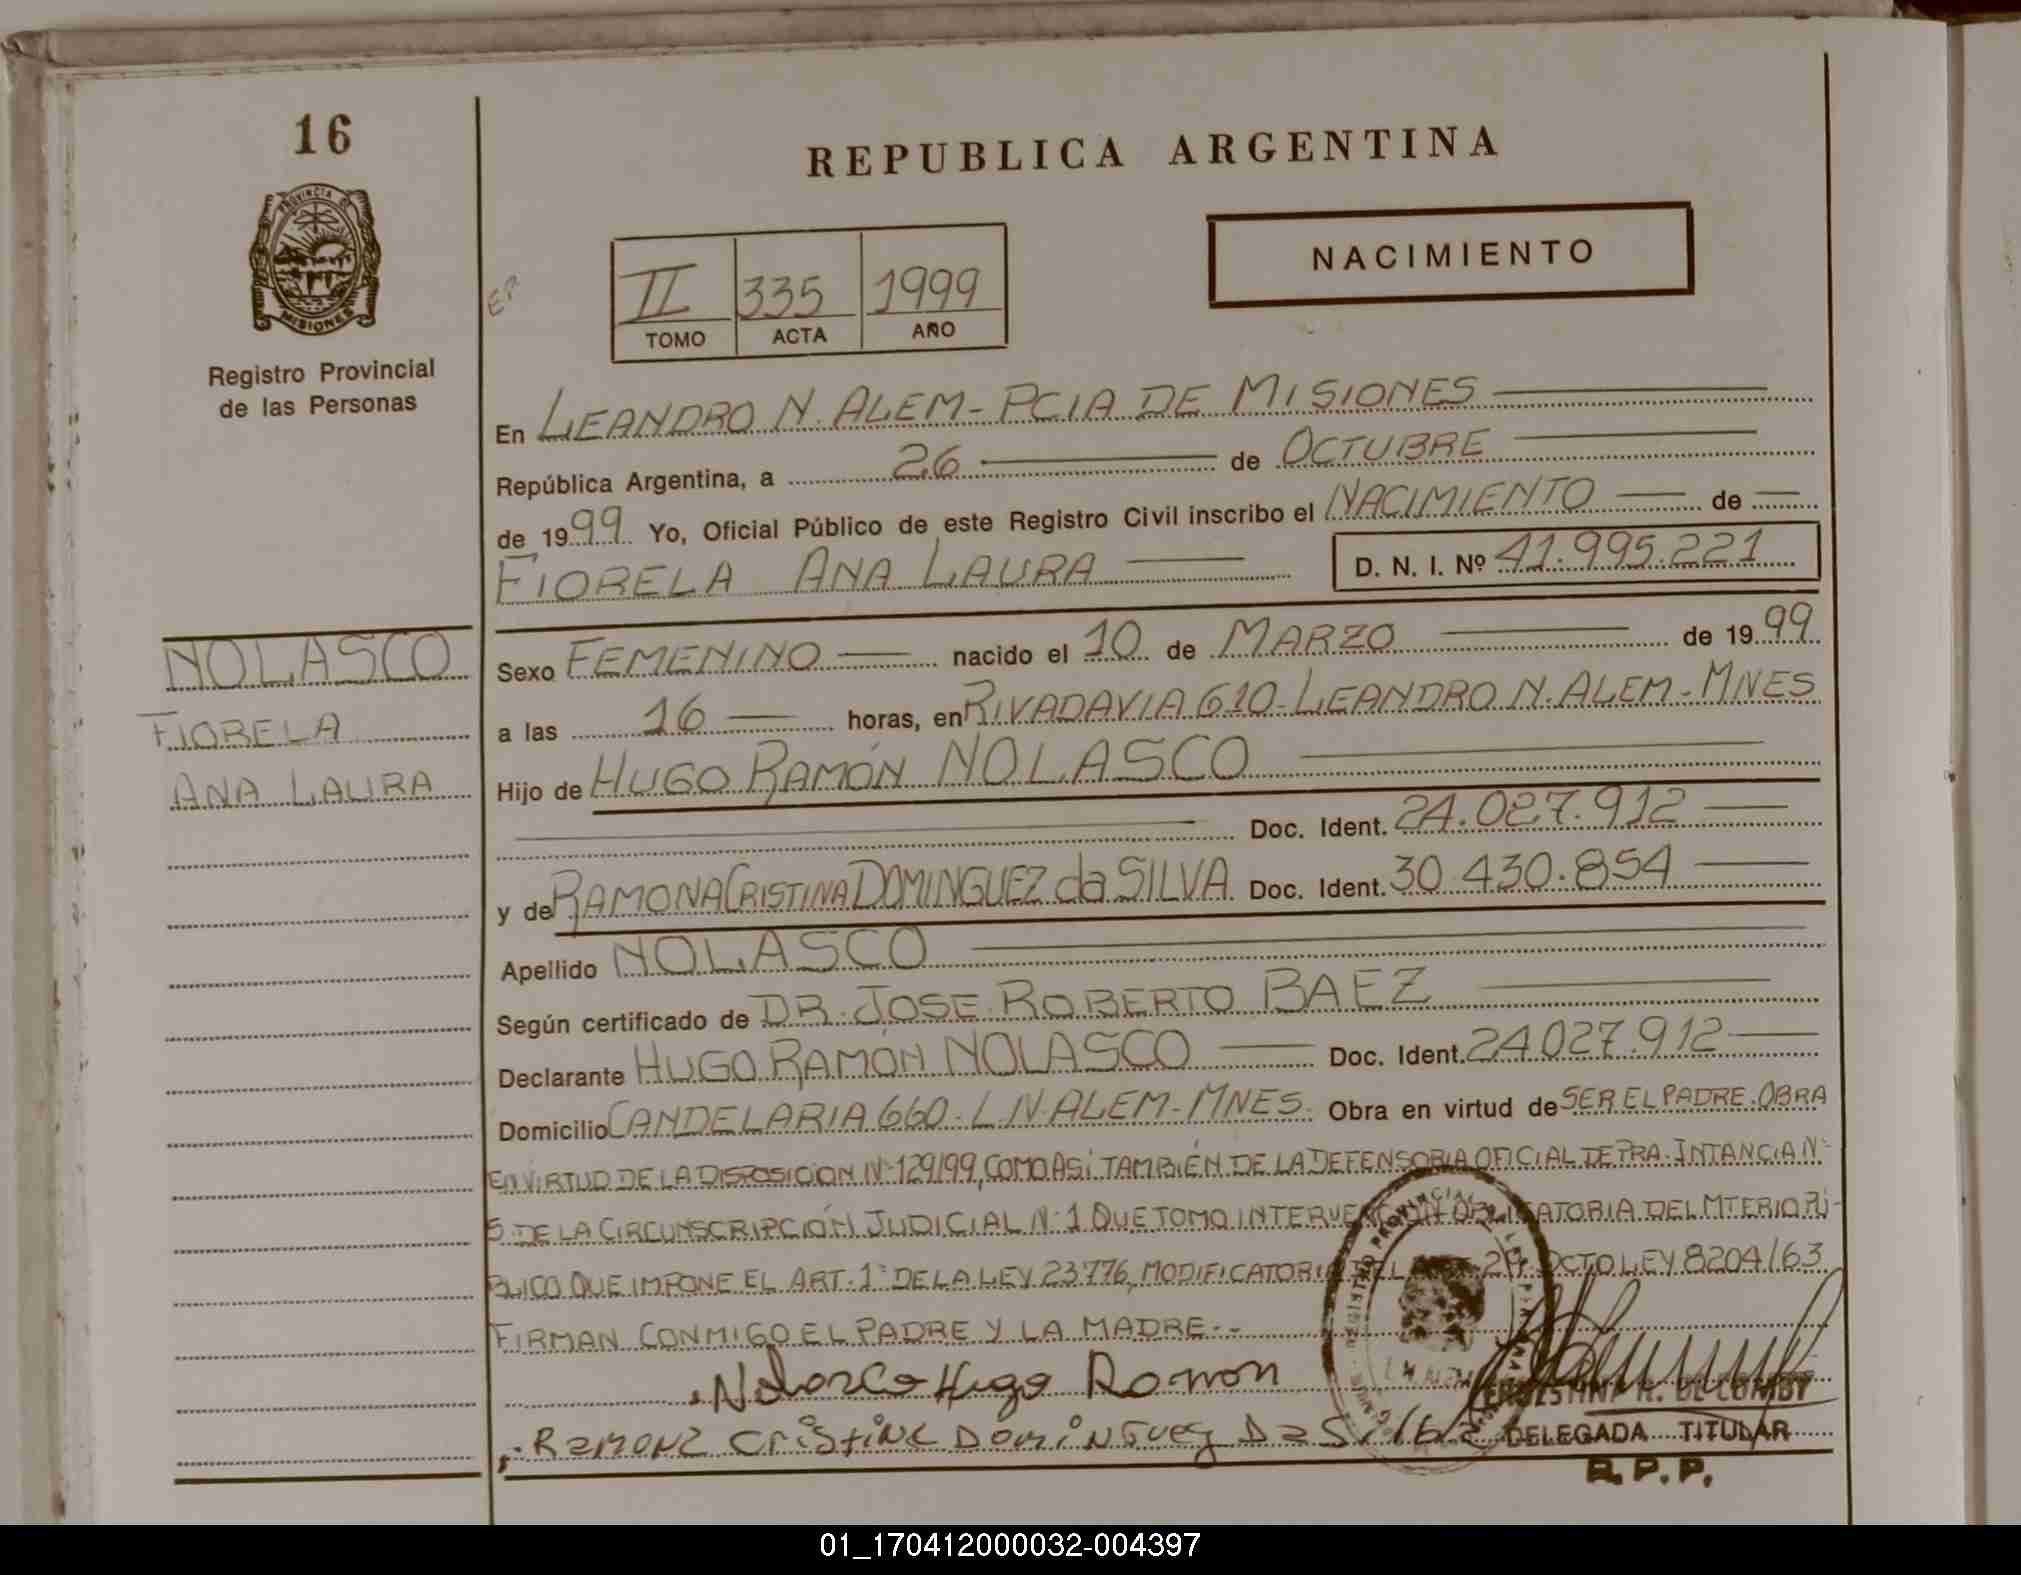 16
PROVINCIA DE
MISIONES
Registro Provincial
de las Personas
NOLASCO
FIORELA
ANA LAURA
REPUBLICA ARGENTINA
NACIMIENTO
II 335 1999
TOMO ACTA AÑO
En LEANDRO N. ALEM - PCIA DE MISIONES
República Argentina, a 26 de OCTUBRE
de 1999 Yo, Oficial Público de este Registro Civil inscribo el NACIMIENTO de
FIORELA ANA LAURA D. N. I. Nº 41.995.221
Sexo FEMENINO nacido el 10 de MARZO de 1999
a las 16 horas, en RIVADAVIA 610 - LEANDRO N. ALEM - MNES
Hijo de HUGO RAMÓN NOLASCO
Doc. Ident. 24.027.912
y de RAMONA CRISTINA DOMINGUEZ da SILVA Doc. Ident. 30.430.854
Apellido NOLASCO
Según certificado de DR. JOSE ROBERTO BAEZ
Declarante HUGO RAMÓN NOLASCO Doc. Ident. 24.027.912
Domicilio CANDELARIA 660 - L.N. ALEM - MNES. Obra en virtud de SER EL PADRE. OBRA
EN VIRTUD DE LA DISPOSICION Nº 129/99, COMO ASÍ TAMBIÉN DE LA DEFENSORIA OFICIAL DE PRA. INTANCIA Nº
5 DE LA CIRCUNSCRIPCIÓN JUDICIAL Nº 1 QUE TOMO INTERVENCION OBLIGATORIA DEL MTERIO PÚ-
BLICO QUE IMPONE EL ART. 1º DE LA LEY 23776, MODIFICATORIA DEL 29 DCTO LEY 8204/63
FIRMAN CONMIGO EL PADRE Y LA MADRE.-
Nolasco Hugo Ramon
Ramona Cristina Dominguez Da Silba
DELEGADA TITULAR
R.P.P.
01_170412000032-004397